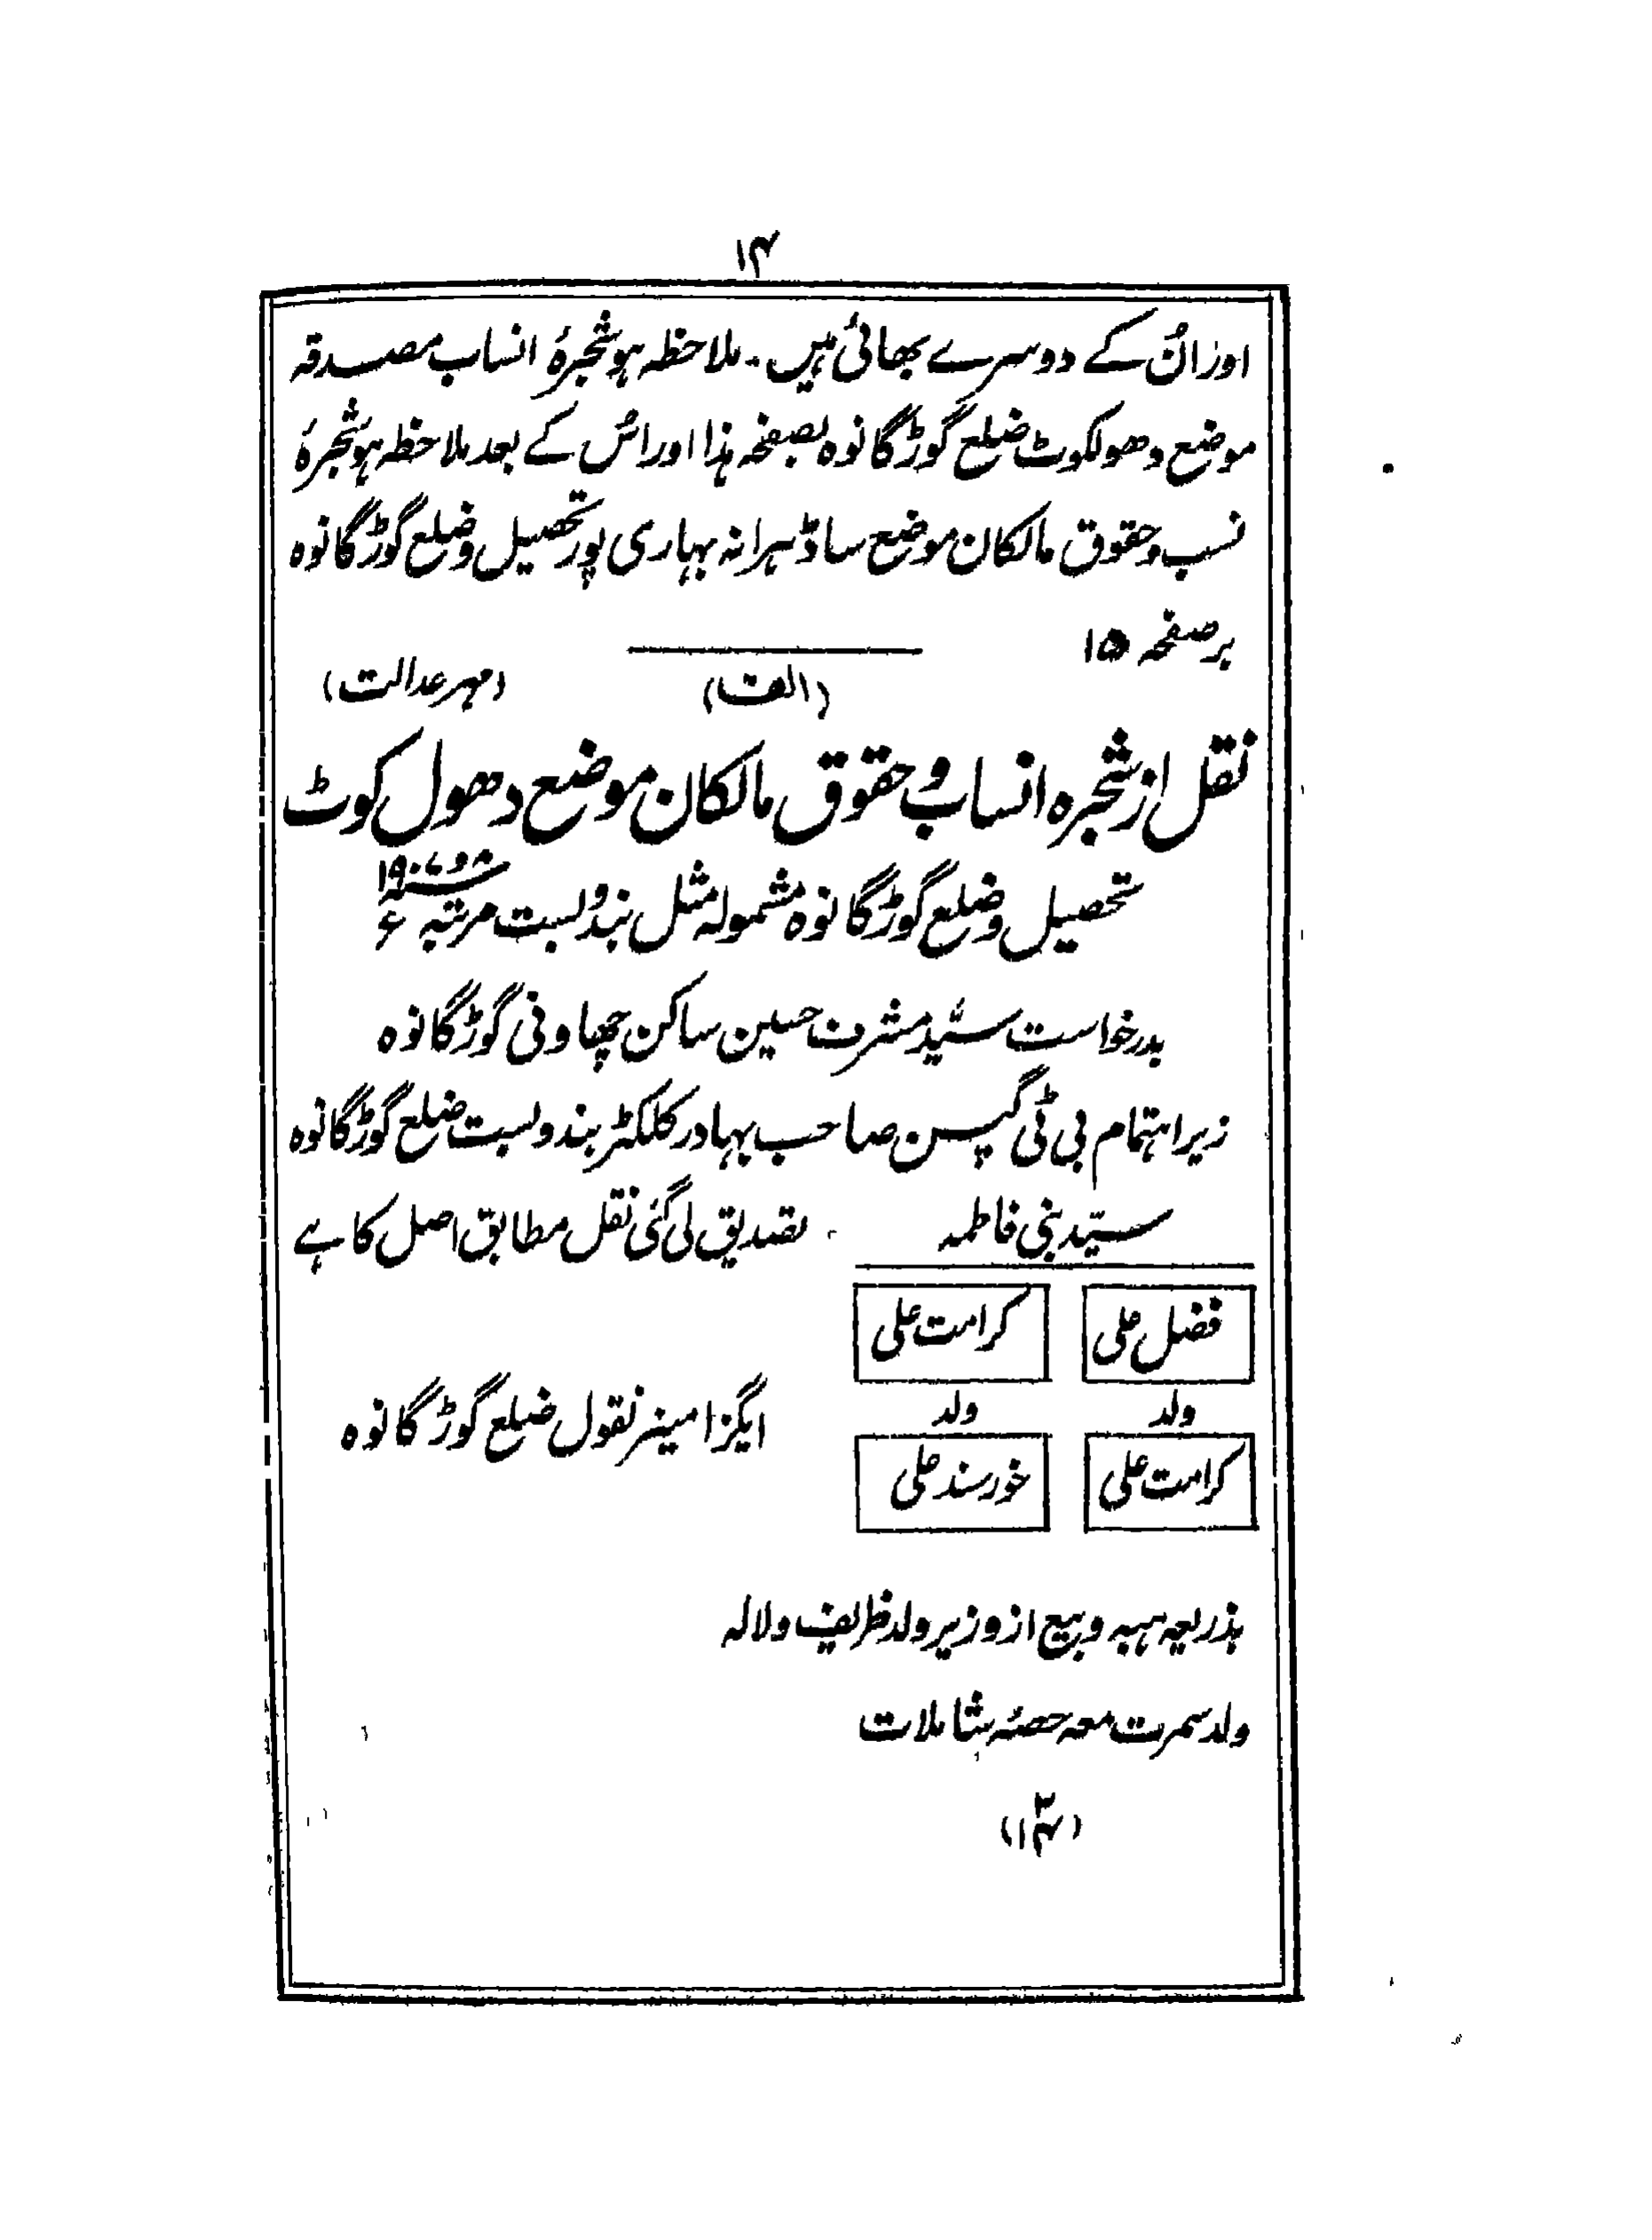 ۱۴
اور اُن کے دوسرے بھائی ہیں۔ ملاحظہ ہو شجرۂ انساب مصدقہ
موضع دھولکوٹ ضلع گوڑگانوہ بصفحہ ہذا اور اس کے بعد ملاحظہ ہو شجرۂ
نسب و حقوق مالکان موضع ساڈہرانہ بہاری پور تحصیل و ضلع گوڑگانوہ
بر صفحہ ۱۵
(الف) (مہر عدالت)
نقل از شجرہ انساب و حقوق مالکان موضع دھول کوٹ
تحصیل و ضلع گوڑگانوہ مشمولہ مثل بندوبست مرتبہ ۸ و ۱۹۰۷ء
بدرخواست سیّد مشرف حسین ساکن چھاونی گوڑگانوہ
زیر اہتمام بی ٹی گپسن صاحب بہادر کلکٹر بندوبست ضلع گوڑگانوہ
سیّد بنی فاطمہ تصدیق لی گئی نقل مطابق اصل کا ہے
فضل علی کرامت علی
ولد ولد
ایگزامینر نقول ضلع گوڑگانوہ
کرامت علی خورسند علی
بذریعہ ہبہ و بیع از وزیر ولد ظریف و لالہ
ولد سمرت معہ حصہ شاملات